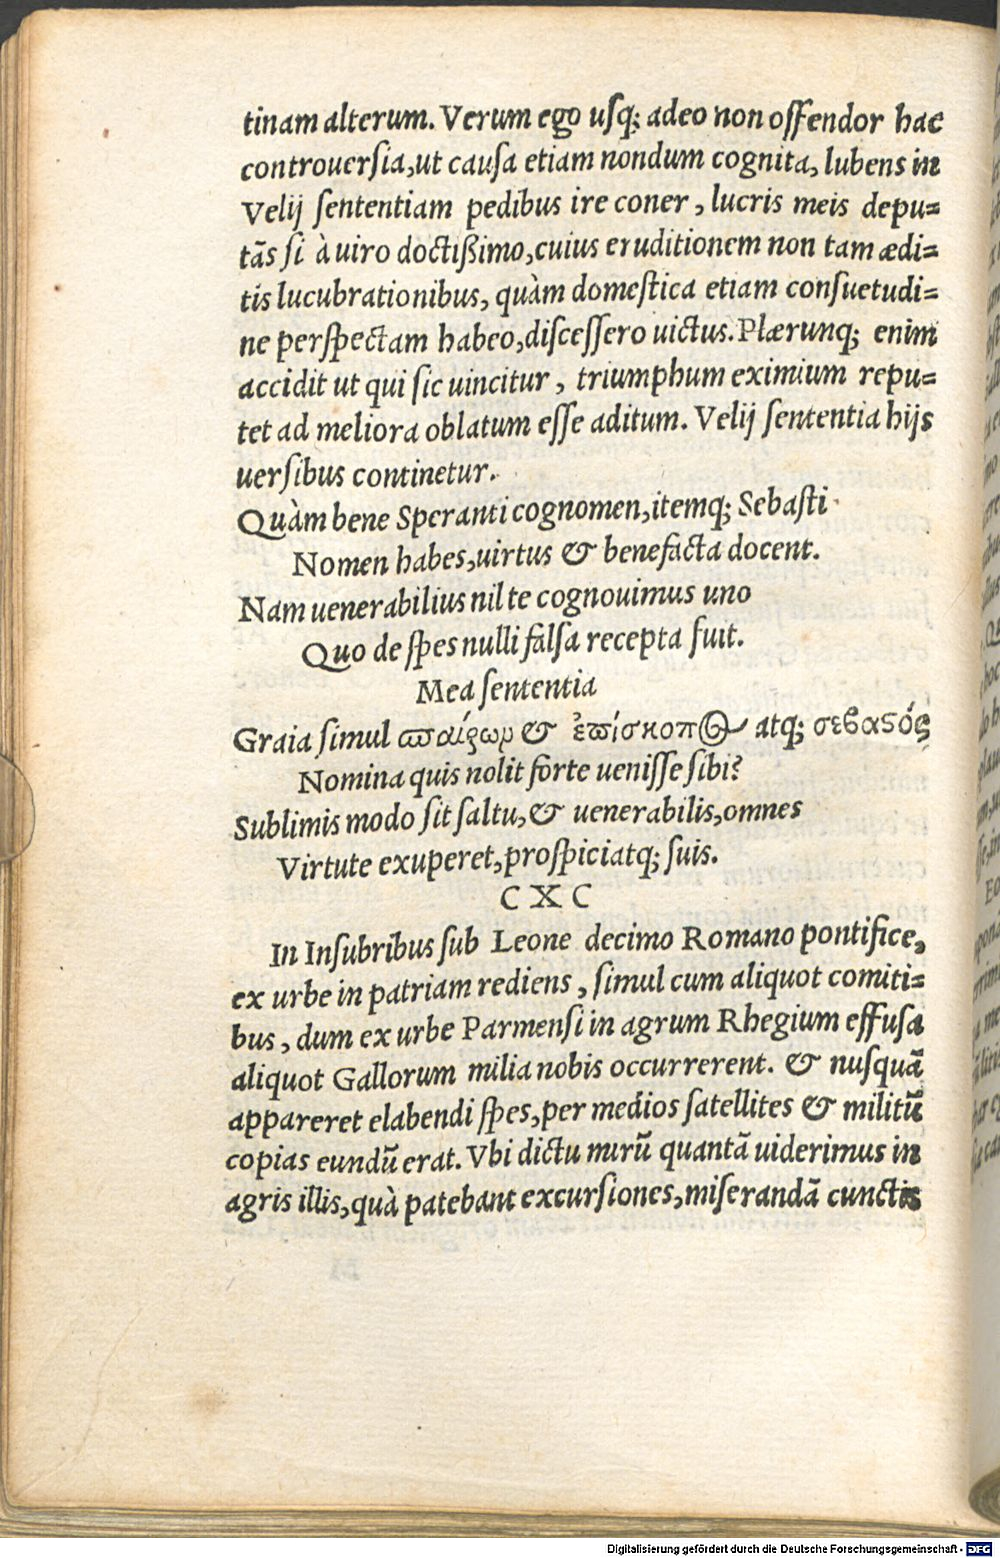 tinam alterum. Verum ego usq; adeo non offendor hac
controuersia,ut causa etiam nondum cognita, lubens in
Velij sententiam pedibus ire coner, lucris meis depu=
tãs si à uiro doctißimo,cuius eruditionem non tam ædi=
tis lucubrationibus, quàm domestica etiam consuetudi=
ne perspectam habeo,discessero uictus.Plærunq; enim
accidit ut qui sic uincitur, triumphum eximium repu=
tet ad meliora oblatum esse aditum. Velij sententia hijs
uersibus continetur.
Quàm bene Speranti cognomen,itemq; Sebasti
Nomen habes,uirtus & benefacta docent.
Nam uenerabilius nil te cognouimus uno
Quo de spes nulli falsa recepta fuit.
Mea sententia
Graia simul ϖαίρων & ἐϖίσκοπος atq; σεβαϛός
Nomina quis nolit forte uenisse sibi?
Sublimis modo sit saltu,& uenerabilis,omnes
Virtute exuperet,prospiciatq; suis.
CXC
In Insubribus sub Leone decimo Romano pontifice,
ex urbe in patriam rediens, simul cum aliquot comiti=
bus, dum ex urbe Parmensi in agrum Rhegium effusa
aliquot Gallorum milia nobis occurrerent. & nusquã
appareret elabendi spes,per medios satellites & militũ
copias eundũ erat. Vbi dictu mirũ quantã uiderimus in
agris illis,quà patebant excursiones,miserandã cunctis
Digitalisierung gefördert durch die Deutsche Forschungsgemeinschaft - DFG